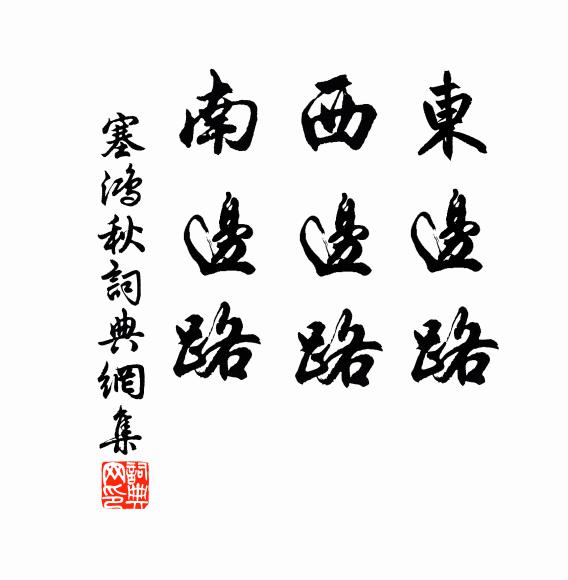 東邊路
西邊路
南邊路
塞鴻秋詞典網集
詞典网印